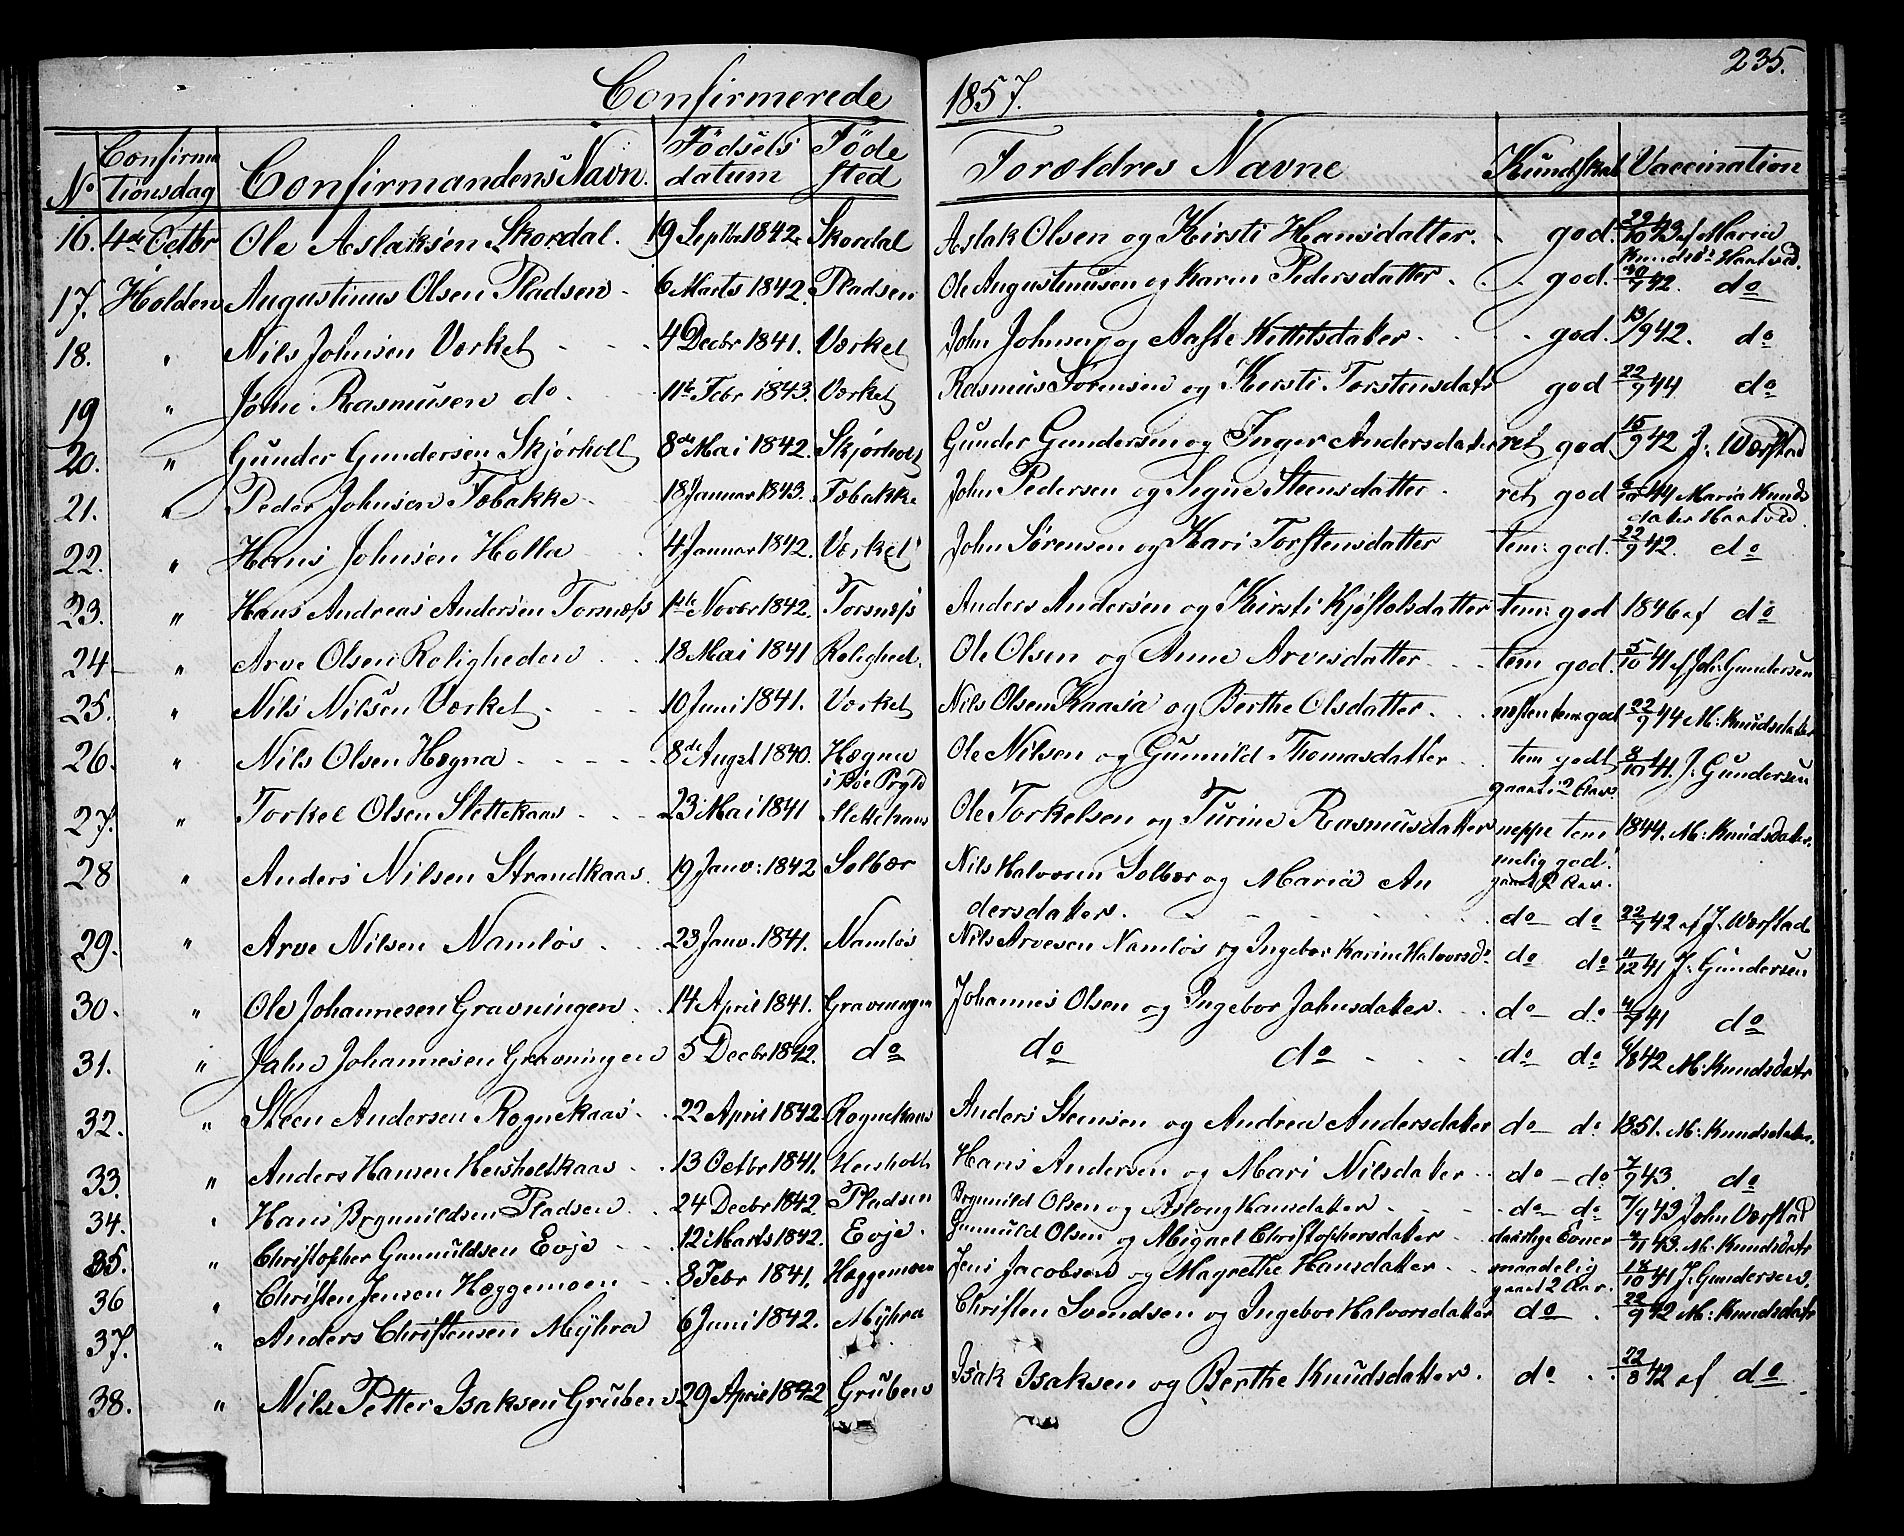 235.
Confirmerede 1857.
No Confirmationsdag Confirmandens Navn. Fødselsdatum Fødested Forældres Navne Kundskab Vaccination
16. 4de Octbr Ole Aslaksen Skordal. 19 Septbr 1842 Skordal Aslak Olsen og Kirsti Hansdatter. god. 29/10 43 af Maria Knudsdr Haatved.
17. Holden Augustinus Olsen Pladsen 6 Marts 1842. Pladsen Ole Augustinusen og Karen Pedersdatter god. /9 42. do
18. " Nils Johnsen Værket 4 Decbr 1841. Værket John Johnsen og Aaste Kittilsdatter god. 13/9 42. do
19 " Jøm Rasmusen do 11te Febr 1843. Værket Rasmus Sørensen og Kirsti Torstensdatr god 22/9 44 do
20. " Gunder Gundersen Skjørholt 8de Mai 1842. Skjørholt Gunder Gundersen og Inger Andersdatter ret god 15/9 42 J: Værstad
21. " Peder Johnsen Fæbakke 18 Januar 1843. Fæbakke John Pedersen og Signe Steensdatter ret god 6/10 44 Maria Knudsdatter Haatved.
22. " Hans Johnsen Holla 4 Januar 1842. Værket John Sørensen og Kari Torstensdatter tem: god. 22/9 42. do
23. " Hans Andreas Andersen Torsnæs 1ste Novbr 1842. Torsnæs Anders Andersen og Kirsti Kjøstolsdatter tem: god 1846 af do
24 " Arve Olsen Roligheden 18 Mai 1841 Rolighed. Ole Olsen og Anne Arvesdatter tem god. 5/10 41 af Joh: Gundersen
25. " Nils Nilsen Værket 10 Juni 1841. Værket Nils Olsen Kaasa og Berthe Olsdatter. næsten tem: god 22/9 44 M: Knudsdatter
26. " Nils Olsen Hegna 8de Augst 1840. Hægna i Bøe Prgld Ole Nilsen og Gunnild Thomasdatter tem godt gaaet i 2 Aar. 8/10 41. J: Gundersen
27. " Torkel Olsen Slettekaas 23 Mai 1841 Slettekaas Ole Torkelsen og Turine Rasmusdatter neppe temmelig god. gaaet 2 Aar. 1844. M: Knudsdatter.
28 " Anders Nilsen Strandkaas. 19 Janv: 1842 Solbær Nils Halvorsen Solbær og Maria Andersdatter. do do 22/9 42 af J. Værstad
29. " Arve Nilsen Namløs 23 Janv. 1841. Namløs Nils Arvesen Namløs og Ingebor Karine Halvorsdr do do 11/12 41 J: Gundersen
30. " Ole Johannesen Gravningen 14 April 1841. Gravningen Johannes Olsen og Ingebor Jahnsdatter. do do /9 41 do
31. " Jahn Johannesen Gravningen 5 Decbr 1842. do do do do do 6/8 42 M: Knudsdatr
32. " Steen Andersen Rognekaas 22 April 1842 Rognekaas Anders Steensen og Andrea Andersdatter do do 1851. M: Knudsdatter.
33. " Anders Hansen Heisholtkaas 13 Octbr 1841. Heisholt Hans Andersen og Mari Nilsdatter do do 7/9 43. do
34. " Hans Brynnildsen Pladsen 24 Decbr 1842 Pladsen Brynnild Olsen og Asloug Hansdatter do do 7/9 43 John Værstad
35. " Christopher Gunnuldsen Evje 12 Marts 1842. Evje. Gunnuld Olsen og Mignel Christophersdatter daarlige Evner /11 43. M: Knudsdatr
36 " Christen Jensen Hæggemoen 8 Febr 1841. Hæggemoen Jens Jacobsen og Magrethe Hansdatter maadelig gaaet 2 Aar. 18/10 41 J: Gundersen.
37. " Anders Christensen Myhra 6 Juni 1842. Myhra Christen Svendsen og Ingebor Halvorsdatter do 22/9 42 M: Knudsdatr
38. " Nils Petter Isaksen Gruben 29 April 1842 Gruben Isak Isaksen og Berthe Knudsdatter. do 22/8 42 af do